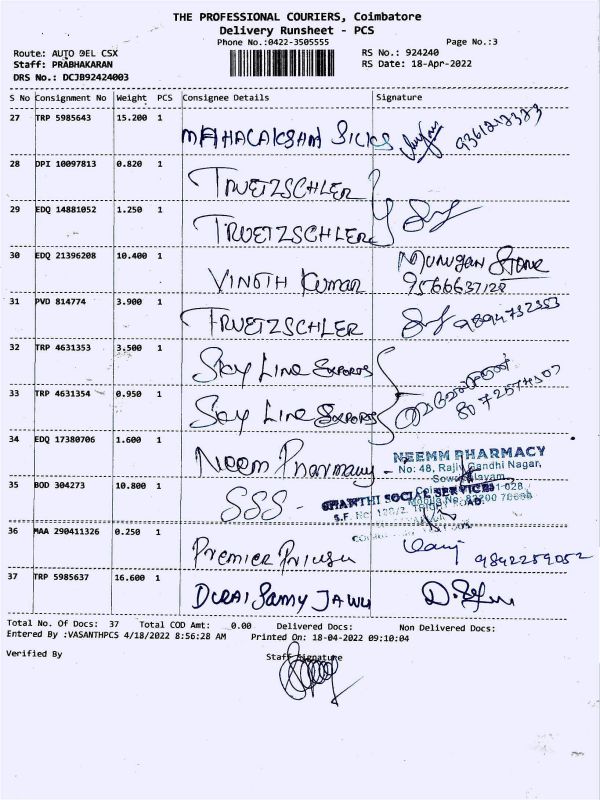 THE PROFESSIONAL COURIERS, Coimbatore
Delivery Runsheet - PCS
Phone No.:0422-3505555 Page No.:3
Route: AUTO DEL CSX RS No.: 924240
Staff: PRABHAKARAN RS Date: 18-Apr-2022
DRS No.: DCJB92424003
S No Consignment No Weight PCS Consignee Details Signature
27 TRP 5985643 15.200 1
MAHALAKSHMI SILKS
28 DPI 10097813 0.820 1
TRUETZSCHLER
29 EDQ 14881052 1.250 1
TRUETZSCHLER
30 EDQ 21396208 10.400 1 Murugan Store
VINOTH Kumar 9566637128
31 PVD 814774 3.900 1
TRUETZSCHLER 9894732353
32 TRP 4631353 3.500 1
Sky Line Exports
33 TRP 4631354 0.950 1
Sky Line Exports
34 EDQ 17380706 1.600 1
Neem Pharmacy -
NEEMM PHARMACY
No: 48, Rajiv Gandhi Nagar,
35 BOD 304273 10.800 1
SSS -
SHANTHI SOCIAL SERVICES
36 MAA 290411326 0.250 1
Premier 9842259052
37 TRP 5985637 16.600 1
DURAI Samy
Total No. Of Docs: 37 Total COD Amt: 0.00 Delivered Docs: Non Delivered Docs:
Entered By :VASANTHPCS 4/18/2022 8:56:28 AM Printed On: 18-04-2022 09:10:04
Verified By Staff Signature